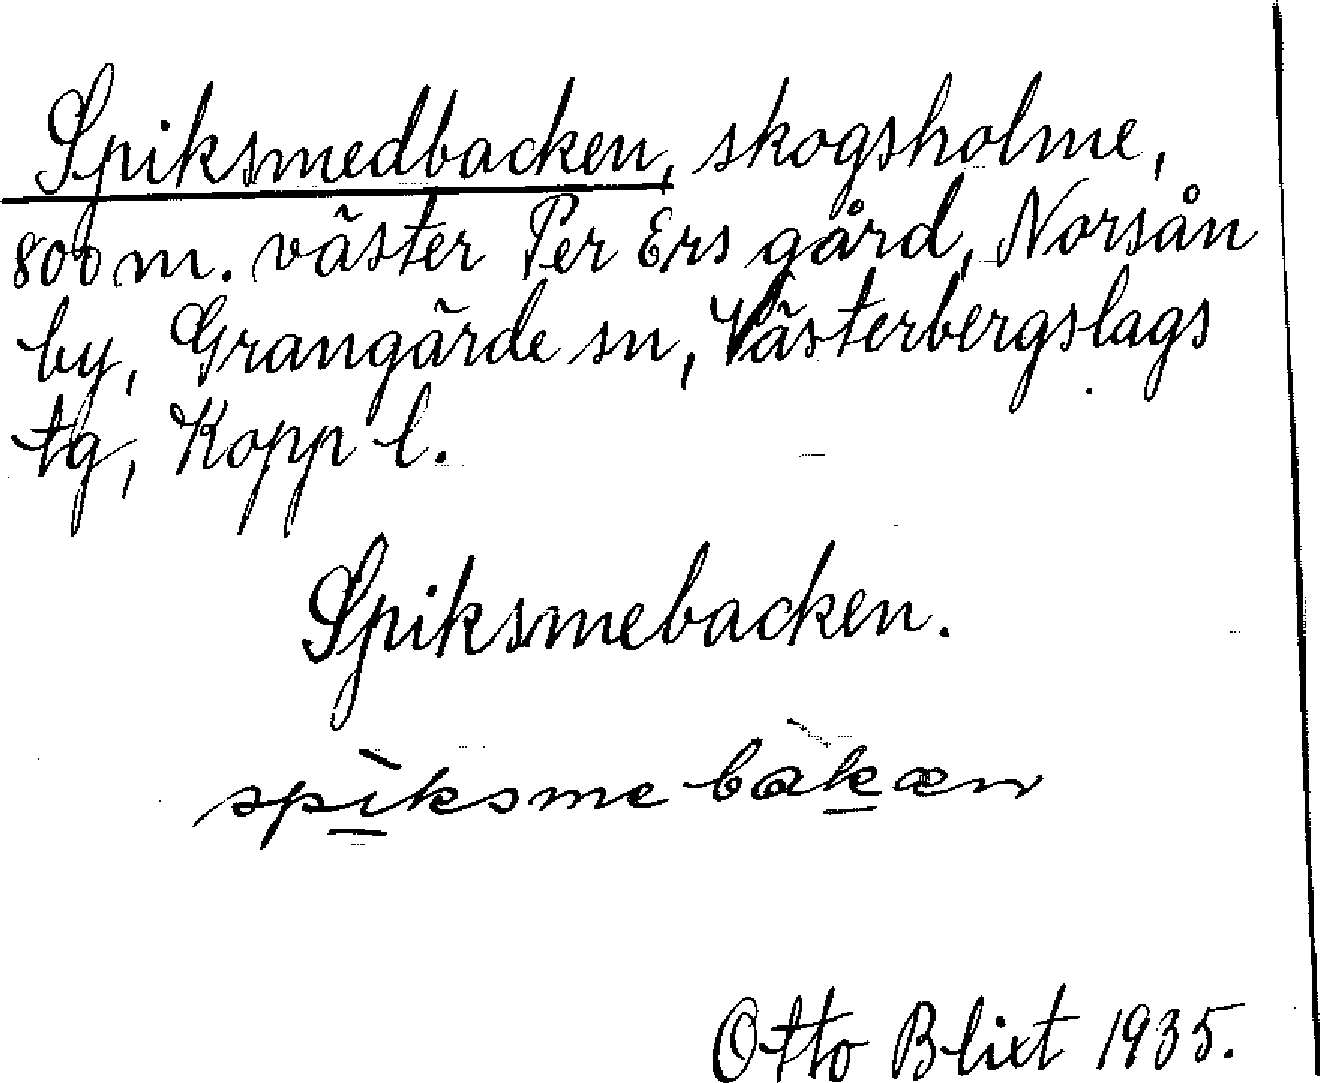 Spiksmedbacken, skogsholme,
800 m. väster Per Ers gård, Norsån
by, Grangärde sn, Västerbergslags
tg, Kopp l.
Spiksmebacken.
spìksme bàkæn
Otto Blixt 1935.